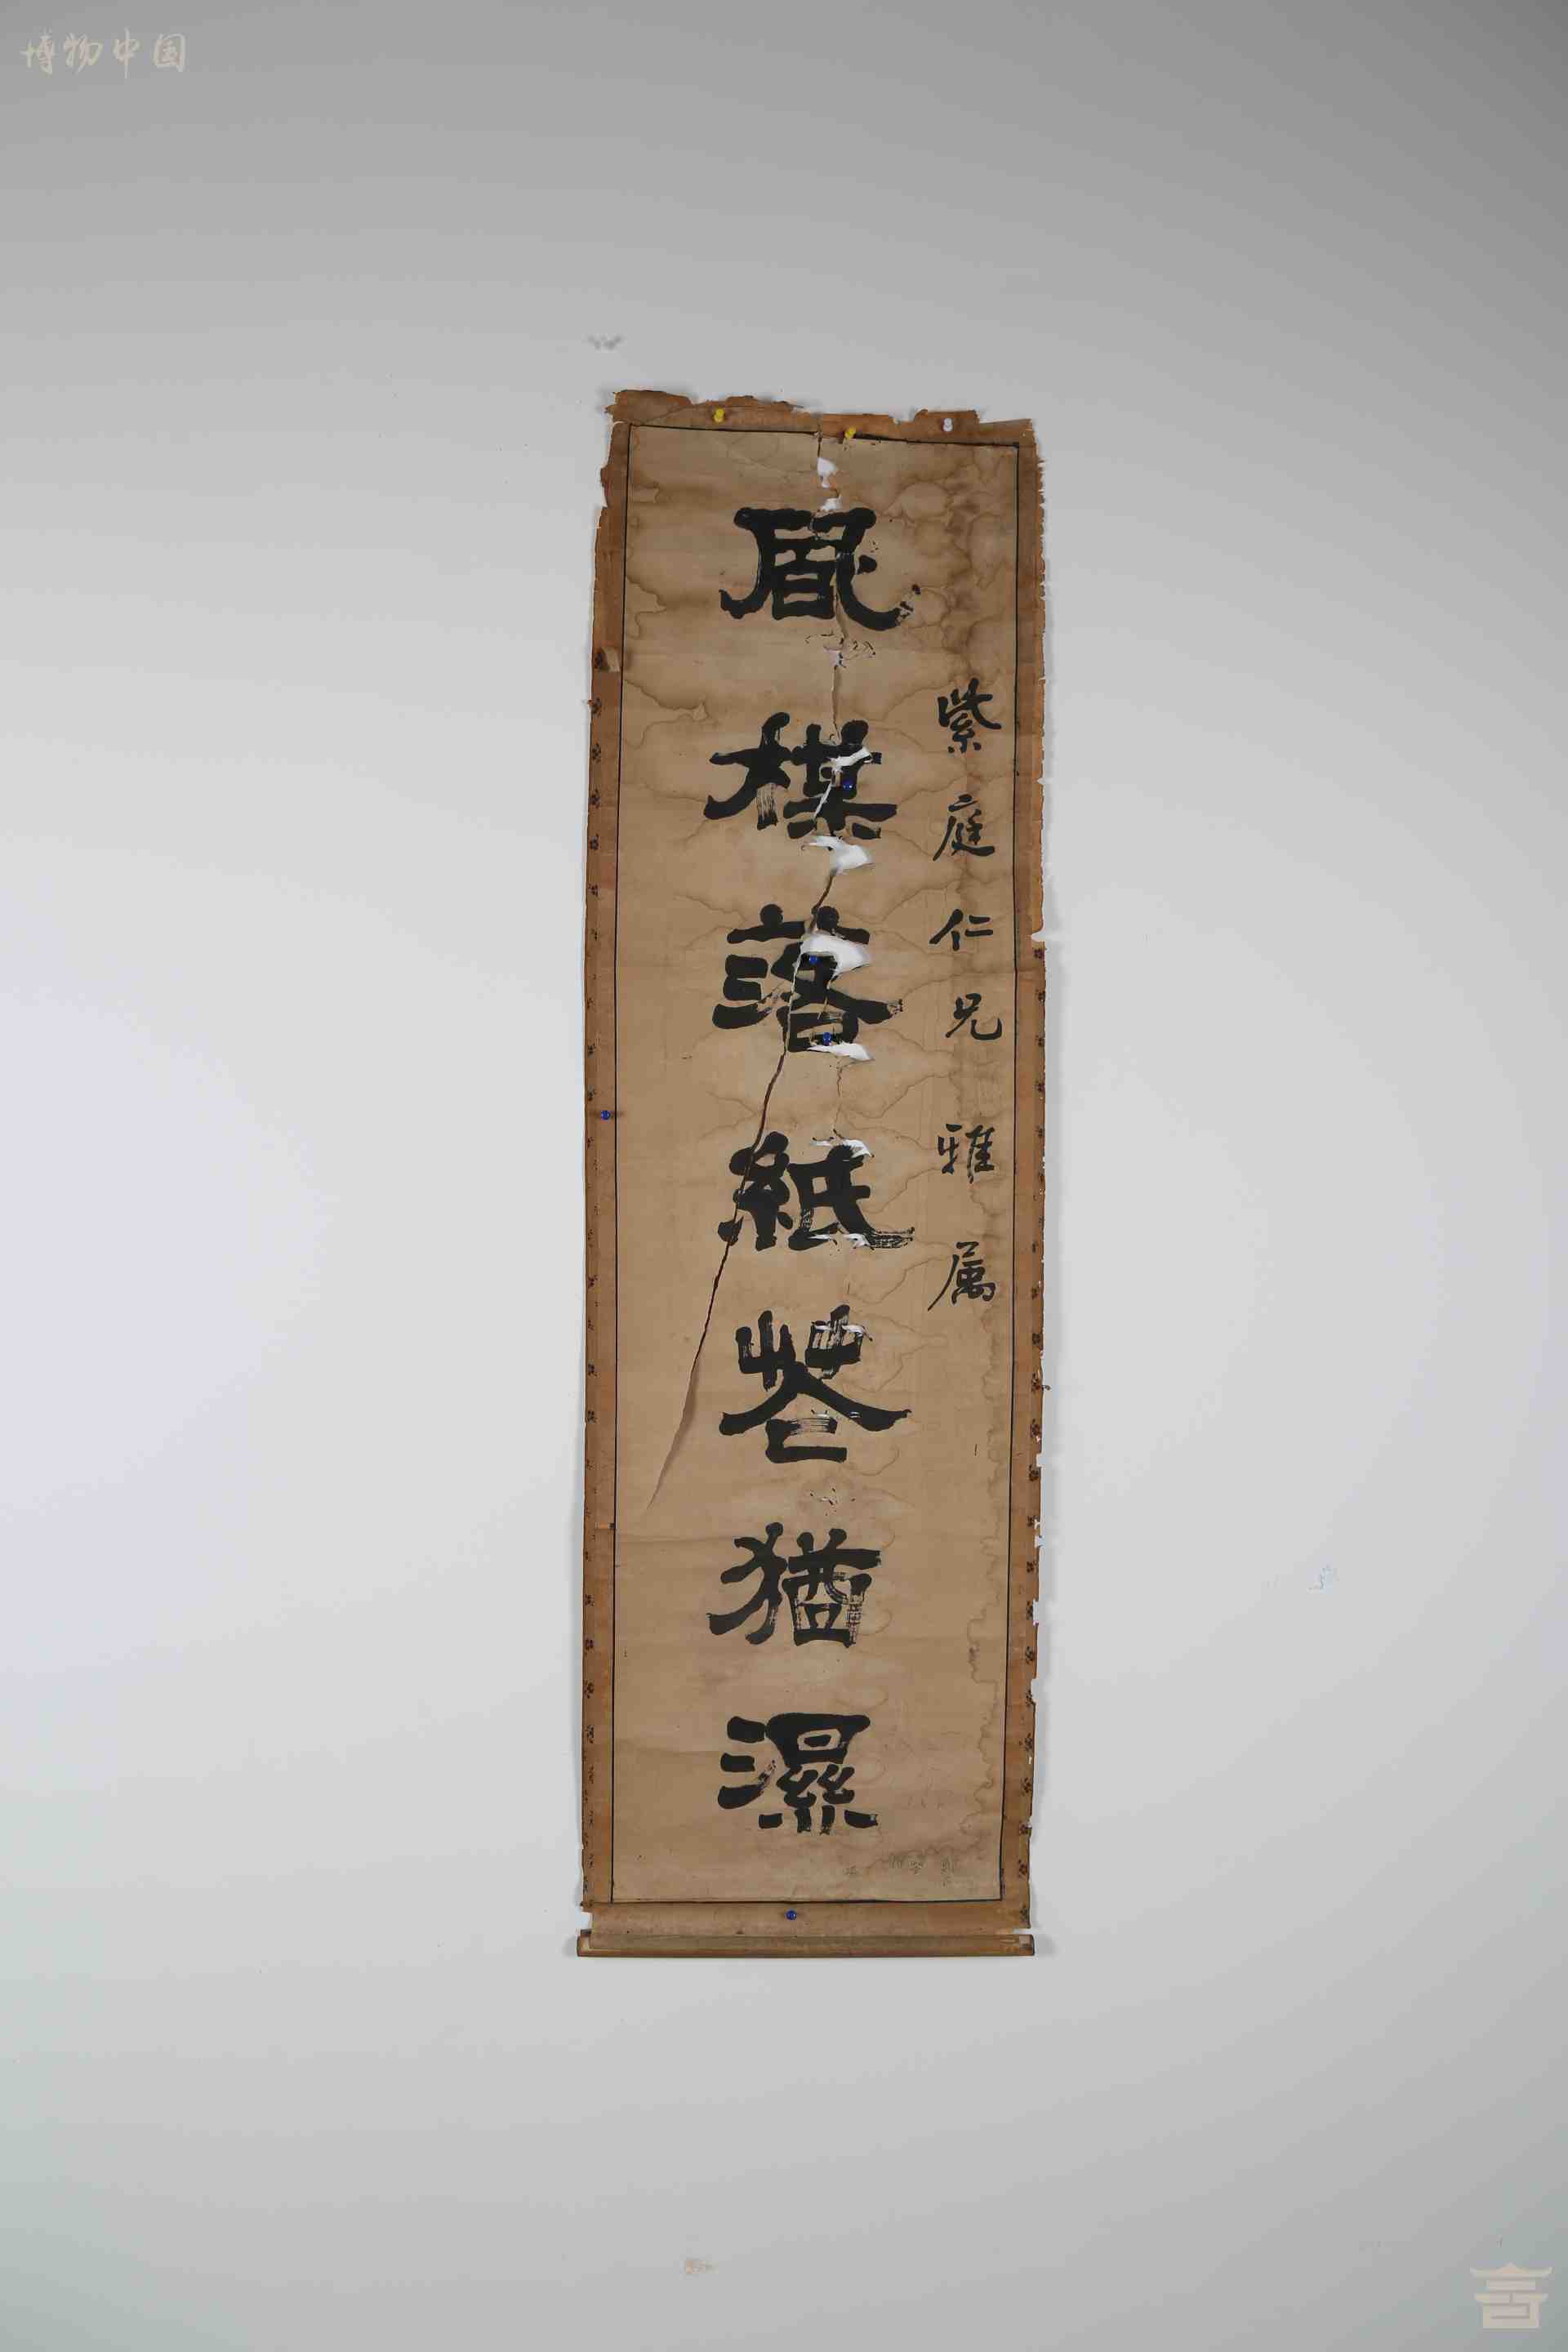 博物中国
紫庭仁兄雅属
風楪落紙花猶濕